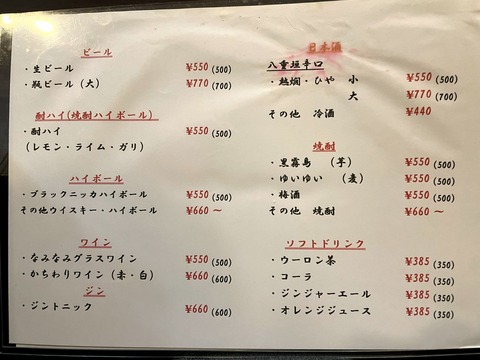 ビール
・生ビール ¥550 (500)
・瓶ビール（大） ¥770 (700)
酎ハイ(焼酎ハイボール)
・酎ハイ ¥550 (500)
（レモン・ライム・ガリ）
ハイボール
・ブラックニッカハイボール ¥550 (500)
その他ウイスキー・ハイボール ¥660～
ワイン
・なみなみグラスワイン ¥550 (500)
・かちわりワイン（赤・白） ¥660 (600)
ジン
・ジントニック ¥660 (600)
日本酒
八重垣辛口
・熱燗・ひや 小 ¥550 (500)
大 ¥770 (700)
その他 冷酒 ¥440
焼酎
・黒霧島 （芋） ¥550 (500)
・ゆいゆい （麦） ¥550 (500)
・梅酒 ¥550 (500)
その他 焼酎 ¥660～
ソフトドリンク
・ウーロン茶 ¥385 (350)
・コーラ ¥385 (350)
・ジンジャーエール ¥385 (350)
・オレンジジュース ¥385 (350)